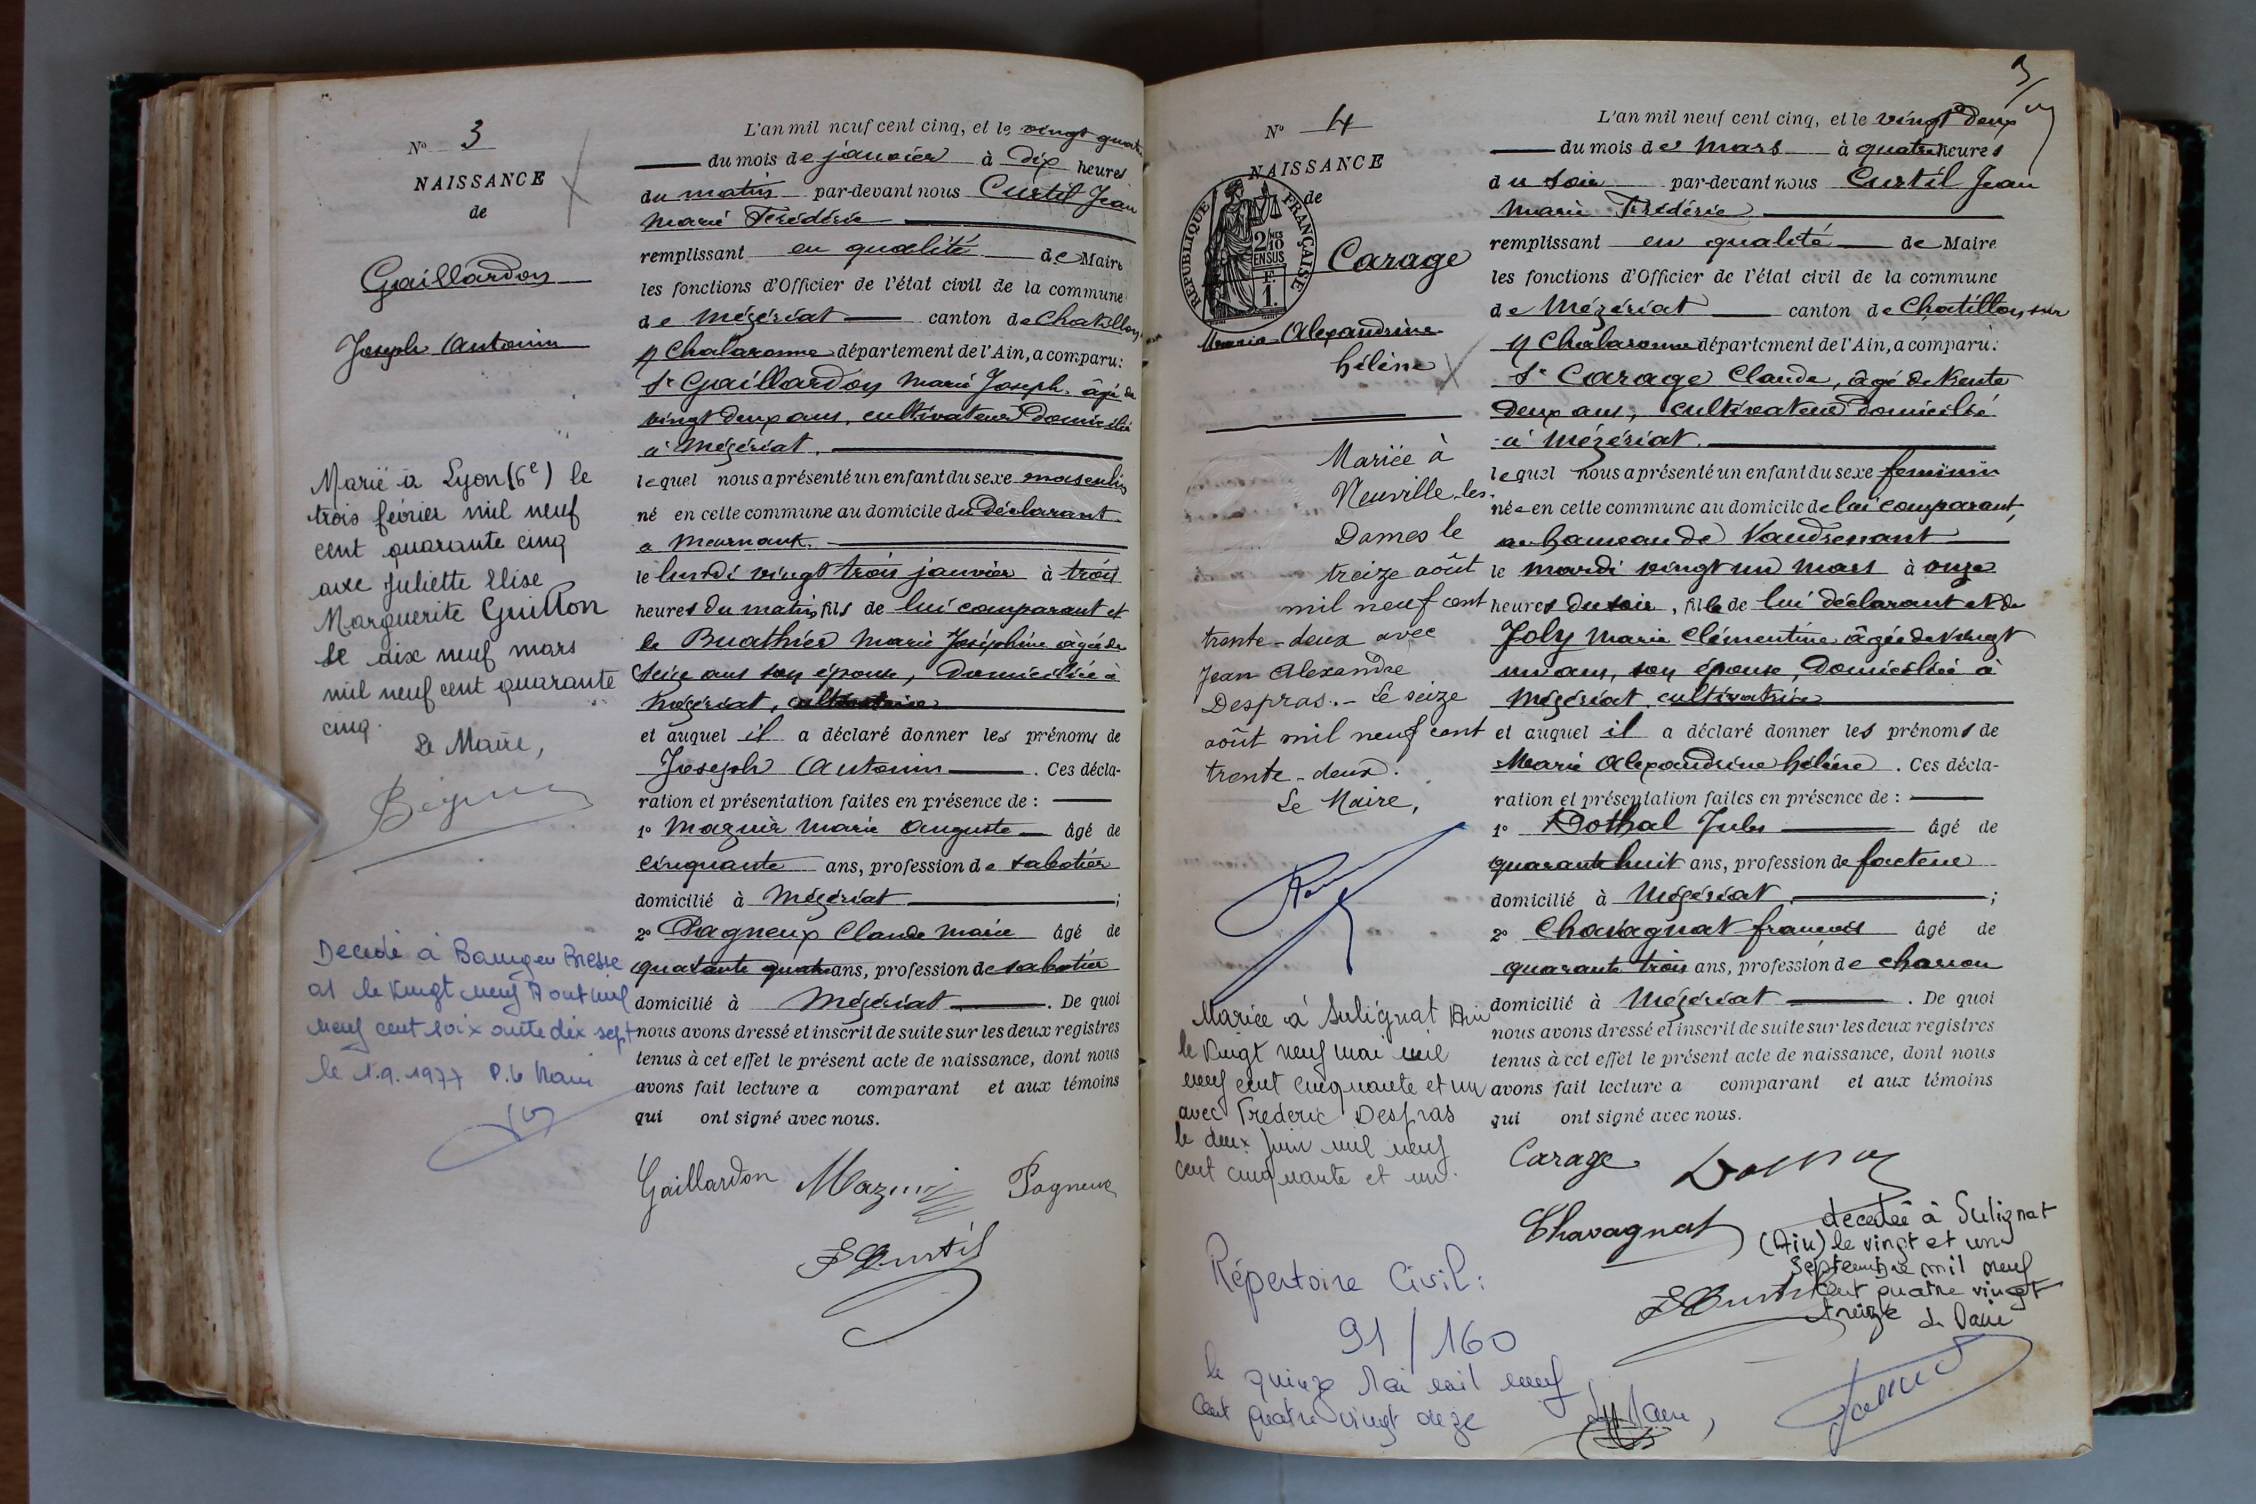 N° 3
NAISSANCE
de
Gaillardon
Joseph Antonin
Marié à Lyon (6e) le
trois février mil neuf
cent quarante cinq
avec Juliette Elise
Marguerite Guitton
le dix neuf mars
mil neuf cent quarante
cinq.
Le Maire,
Décédé à Bourg en Bresse
01 le vingt neuf Aout mil
neuf cent soixante dix sept
le 1.9.1977 P. le Maire
L'an mil neuf cent cinq, et le vingt quatre
du mois de janvier à dix heures
du matin par-devant nous Curtil Jean
Marie Frédéric
remplissant en qualité de Maire
les fonctions d'Officier de l'état civil de la commune
de Mézériat canton de Chatillon
s/ Chalaronne département de l'Ain, a comparu:
Sr Gaillardon Marie Joseph, âgé de
vingt deux ans, cultivateur domicilié
à Mézériat.
lequel nous a présenté un enfant du sexe masculin
né en cette commune au domicile du déclarant
a
le lundi vingt trois janvier à trois
heures du matin, fils de lui comparant et
de Buathier Marie Joséphine âgée de
seize ans son épouse, domiciliée à
Mézériat,
et auquel il a déclaré donner les prénoms de
Joseph Antonin. Ces décla-
ration et présentation faites en présence de :
1° Mazuir Marie Auguste âgé de
cinquante ans, profession de sabotier
domicilié à Mézériat ;
2° Pagneux Claude Marie âgé de
quarante quatre ans, profession de sabotier
domicilié à Mézériat. De quoi
nous avons dressé et inscrit de suite sur les deux registres
tenus à cet effet le présent acte de naissance, dont nous
avons fait lecture a comparant et aux témoins
qui ont signé avec nous.
Gaillardon Mazuir Pagneux
F Curtil
3
N° 4
NAISSANCE
de
RÉPUBLIQUE FRANÇAISE
2/10 EN SUS
1 F.
Carage
Maria Alexandrine
hélène
Mariée à
Neuville-les-
Dames le
treize août
mil neuf cent
trente-deux avec
Jean Alexandre
Despras.- Le seize
août mil neuf cent
trente-deux.
Le Maire,
Mariée à Sulignat Ain
le vingt neuf mai mil
neuf cent cinquante et un
avec Frederic Despras
le deux juin mil neuf
cent cinquante et un.
Répertoire Civil :
91/160
le quinze Mai mil neuf
cent quatre vingt onze
Le Maire,
L'an mil neuf cent cinq, et le vingt deux
du mois de Mars à quatre heures
du soir par-devant nous Curtil Jean
Marie Frédéric
remplissant en qualité de Maire
les fonctions d'Officier de l'état civil de la commune
de Mézériat canton de Chatillon sur
s/ Chalaronne département de l'Ain, a comparu:
Sr Carage Claude, âgé de trente
deux ans, cultivateur domicilié
à Mézériat.
lequel nous a présenté un enfant du sexe feminin
née en cette commune au domicile de lui comparant,
au hameau de Vaudrenant
le mardi vingt un mars à onze
heures du soir, fille de lui déclarant et de
Joly Marie Clémentine âgée de vingt
un ans, son épouse, domiciliée à
Mézériat cultivatrice
et auquel il a déclaré donner les prénoms de
Marie Alexandrine hélène. Ces décla-
ration et présentation faites en présence de :
1° Dothal Jules âgé de
quarante huit ans, profession de facteur
domicilié à Mézériat ;
2° Chavagnat françois âgé de
quarante trois ans, profession de charron
domicilié à Mézériat. De quoi
nous avons dressé et inscrit de suite sur les deux registres
tenus à cet effet le présent acte de naissance, dont nous
avons fait lecture a comparant et aux témoins
qui ont signé avec nous.
Carage
Chavagnat
F Curtil
décédée à Sulignat
(Ain) le vingt et un
Septembre mil neuf
cent quatre vingt
treize Le Maire